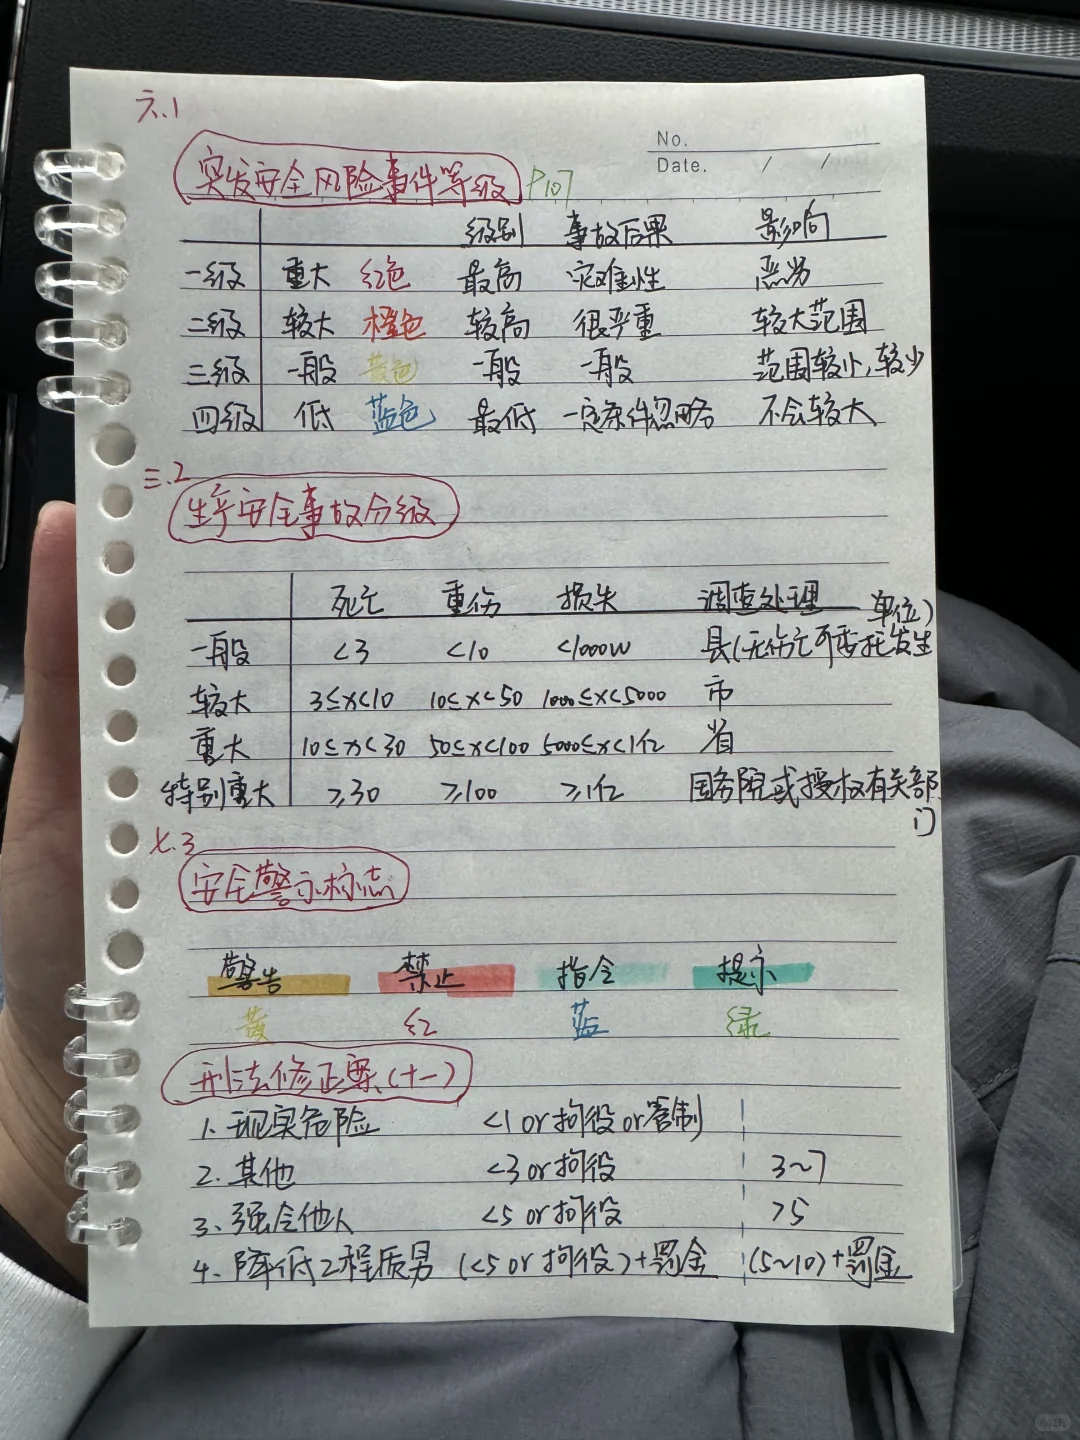 六.1
No.
Date. / /
突发安全风险事件等级 P107
级别 事故后果 影响
一级 重大 红色 最高 灾难性 恶劣
二级 较大 橙色 较高 很严重 较大范围
三级 一般 黄色 一般 一般 范围较小,较少
四级 低 蓝色 最低 一定条件忽略 不会较大
三.2
生产安全事故分级
死亡 重伤 损失 调查处理
一般 <3 <10 <1000W 县(无伤亡可委托发生单位)
较大 3≤x<10 10≤x<50 1000≤x<5000 市
重大 10≤x<30 50≤x<100 5000≤x<1亿 省
特别重大 ≥30 ≥100 ≥1亿 国务院或授权有关部门
七.3
安全警示标志
警告 禁止 指令 提示
黄 红 蓝 绿
刑法修正案(十一)
1.现实危险 <1 or 拘役 or 管制
2.其他 <3 or 拘役 3~7
3.强令他人 <5 or 拘役 >5
4.降低工程质量 (<5 or 拘役)+罚金 (5~10)+罚金